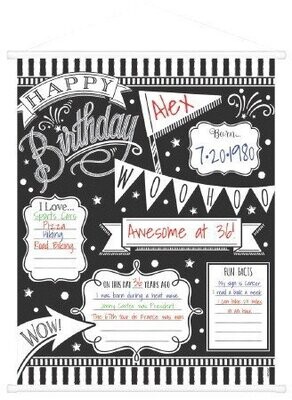 HAPPY
Birthday
Alex
Born...
7-20-1980
WOOHOO
I Love...
Sports Cars
Pizza
Hiking
Road Biking
Awesome at 36!
ON THIS DAY 36 YEARS AGO
I was born during a heat wave.
Jimmy Carter was President.
The 67th tour de France was won
FUN FACTS
My sign is Cancer
I read a book a week
I can bike 25 miles
at an hour.
WOW!